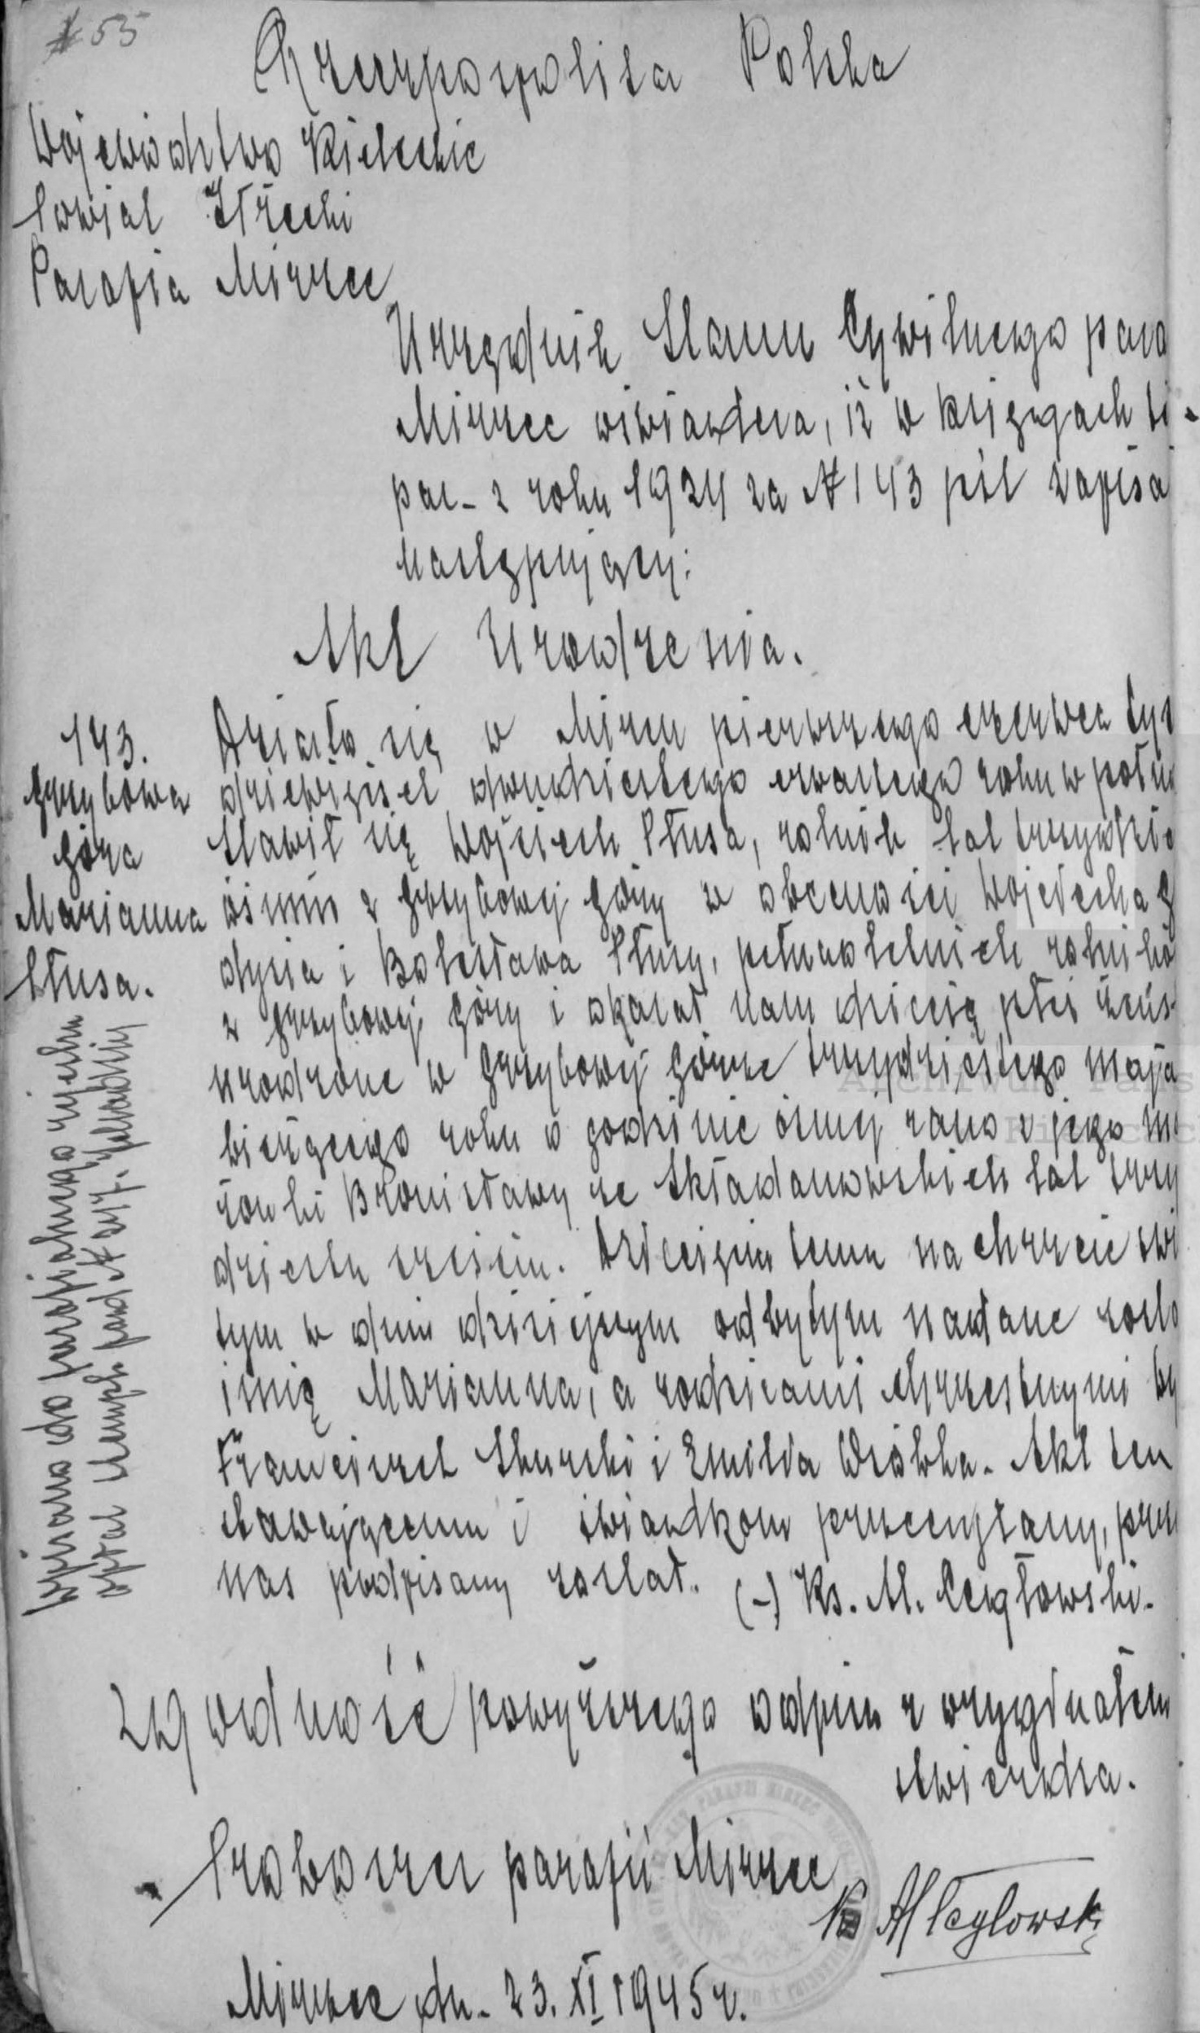 55
Rzeczpospolita Polska
Województwo Kieleckie
Powiat Iłżecki
Parafia Mirzec
Urzędnik Stanu Cywilnego para
Mirzec oświadcza, iż w księgach
par- z roku 1924 za № 143 jest zapisa
następujący:
Akt Urodzenia.
143.
Grzybowa
Góra
Marianna
Płusa.
Działo się w Mircu pierwszego czerwca tys
dziewięćset dwudziestego czwartego roku w połud
Stawił się Wojciech Płusa, rolnik lat trzydzie
ósmiu z Grzybowej Góry w obecności Wojciecha
dysia i Bolesława Płusy, pełnoletnich rolnikó
z Grzybowej Góry i okazał nam dziecię płci żeńs-
urodzone w Grzybowej Górze trzydziestego maja
bieżącego roku o godzinie ósmej rano z jego mał
żonki Bronisławy ze Składanowskich lat trzy
dziestu sześciu. Dziecięciu temu na chrzcie świ
tym w dniu dzisiejszym odbytym nadane zosło
imię Marianna, a rodzicami chrzestnymi by
Franciszek Skurski i Emilia Wróbka. Akt ten
stawającemu i świadkom przeczytany, prze
nas podpisany został. (-) Ks. M. Cegłowski.
Wpisano do parafialnego
pod № 247.
Zgodność powyższego odpisu z oryginałem
stwierdza.
Proboszcz parafii Mirzec
Ks M Cegłowski
Mirzec dn. 23. XI 1945 r.